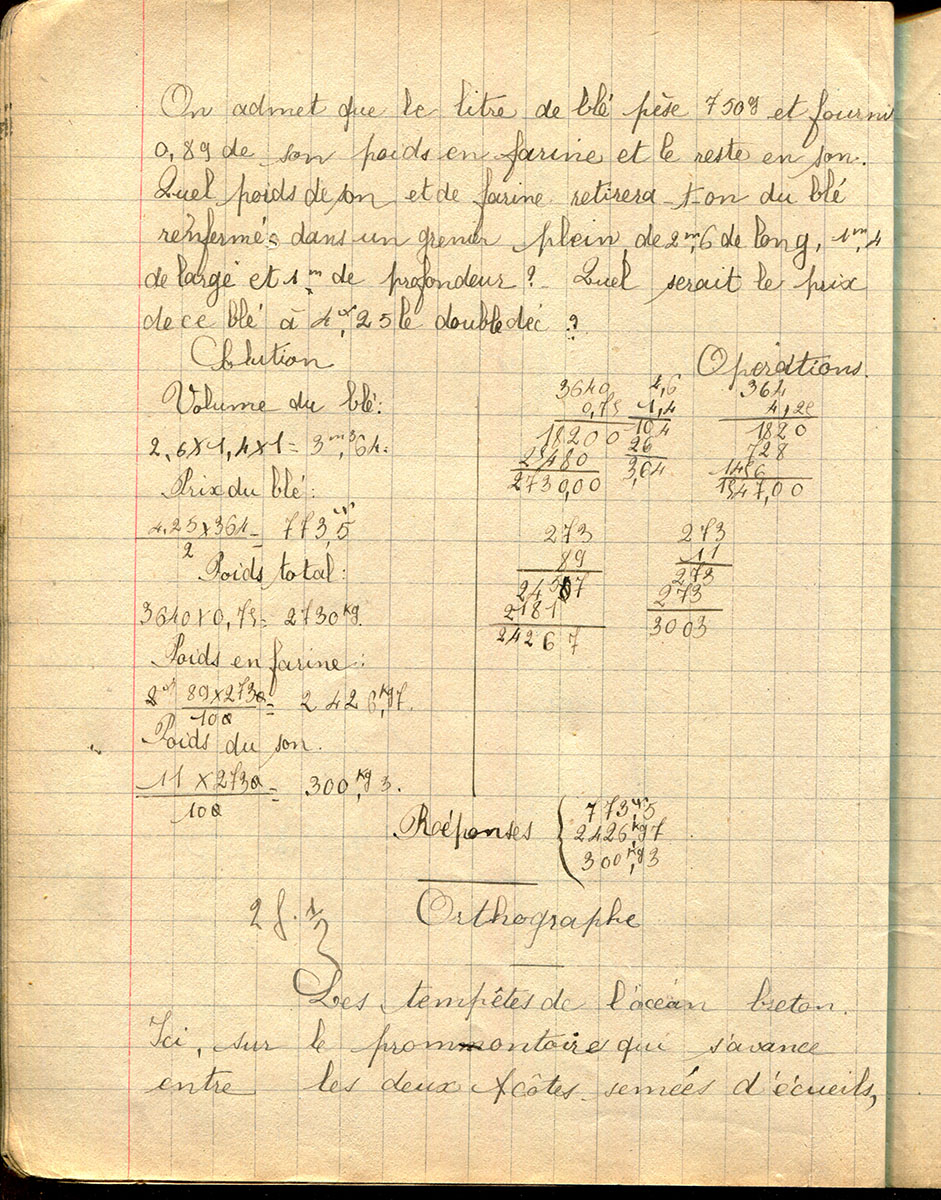 On admet que le litre de blé pèse 750g et fourni
0,89 de son poids en farine et le reste en son.
Quel poids de son et de farine retirera-t-on du blé
renfermés dans un grenier plein de 2m,6 de long, 1m,4
de large et 1m de profondeur ? Quel serait le prix
de ce blé à 4fr,25 le double déc ?
Solution
Opérations.
Volume du blé:
2,6x1,4x1= 3m3,64.
Prix du blé:
4,25x364 = 773fr,5
2
Poids total:
3640x0,75= 2730kg.
Poids en farine:
89x2730 = 2426kg,7.
100
Poids du son.
11x2730 = 300kg,3.
100
3640
0,75
18200
25480
2730,00
2,6
1,4
104
26
3,64
364
4,25
1820
728
1456
1547,00
273
89
2457
2184
24267
273
11
273
273
3003
Réponses { 773fr,5
2426kg,7
300kg,3
2 f. 1/2
Orthographe
Les tempêtes de l'océan breton.
Ici, sur le prommontoire qui s'avance
entre les deux côtes semées d'écueils,